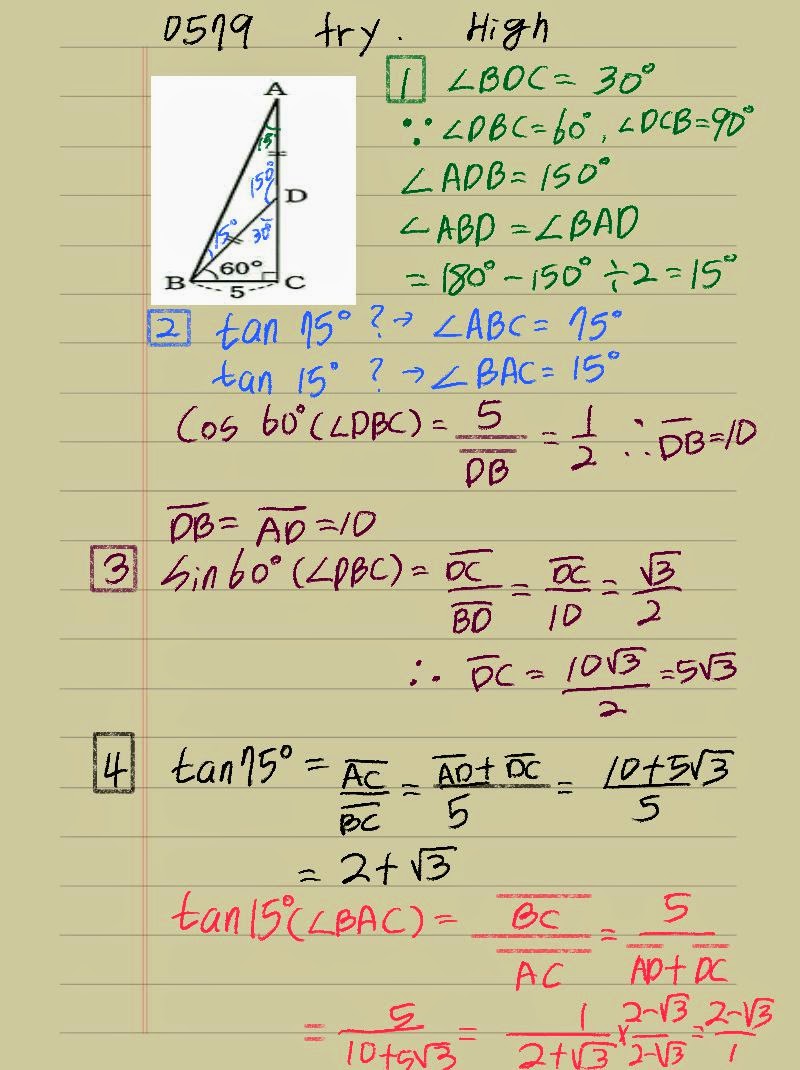 0579 try. High
A
15°
150°
D
15° 30°
B 60° C
5
1 ∠BDC = 30°
∵ ∠DBC = 60°, ∠DCB = 90°
∠ADB = 150°
∠ABD = ∠BAD
= 180° - 150° ÷ 2 = 15°
2 tan 75° ? → ∠ABC = 75°
tan 15° ? → ∠BAC = 15°
Cos 60° (∠DBC) = 5/D̅B̅ = 1/2 ∴ D̅B̅ = 10
D̅B̅ = A̅D̅ = 10
3 Sin 60° (∠DBC) = D̅C̅/B̅D̅ = D̅C̅/10 = √3/2
∴ D̅C̅ = 10√3/2 = 5√3
4 tan 75° = A̅C̅/B̅C̅ = (A̅D̅ + D̅C̅)/5 = (10 + 5√3)/5
= 2 + √3
tan 15° (∠BAC) = B̅C̅/A̅C̅ = 5/(A̅D̅ + D̅C̅)
= 5/(10 + 5√3) = 1/(2 + √3) × (2 - √3)/(2 - √3) = (2 - √3)/1